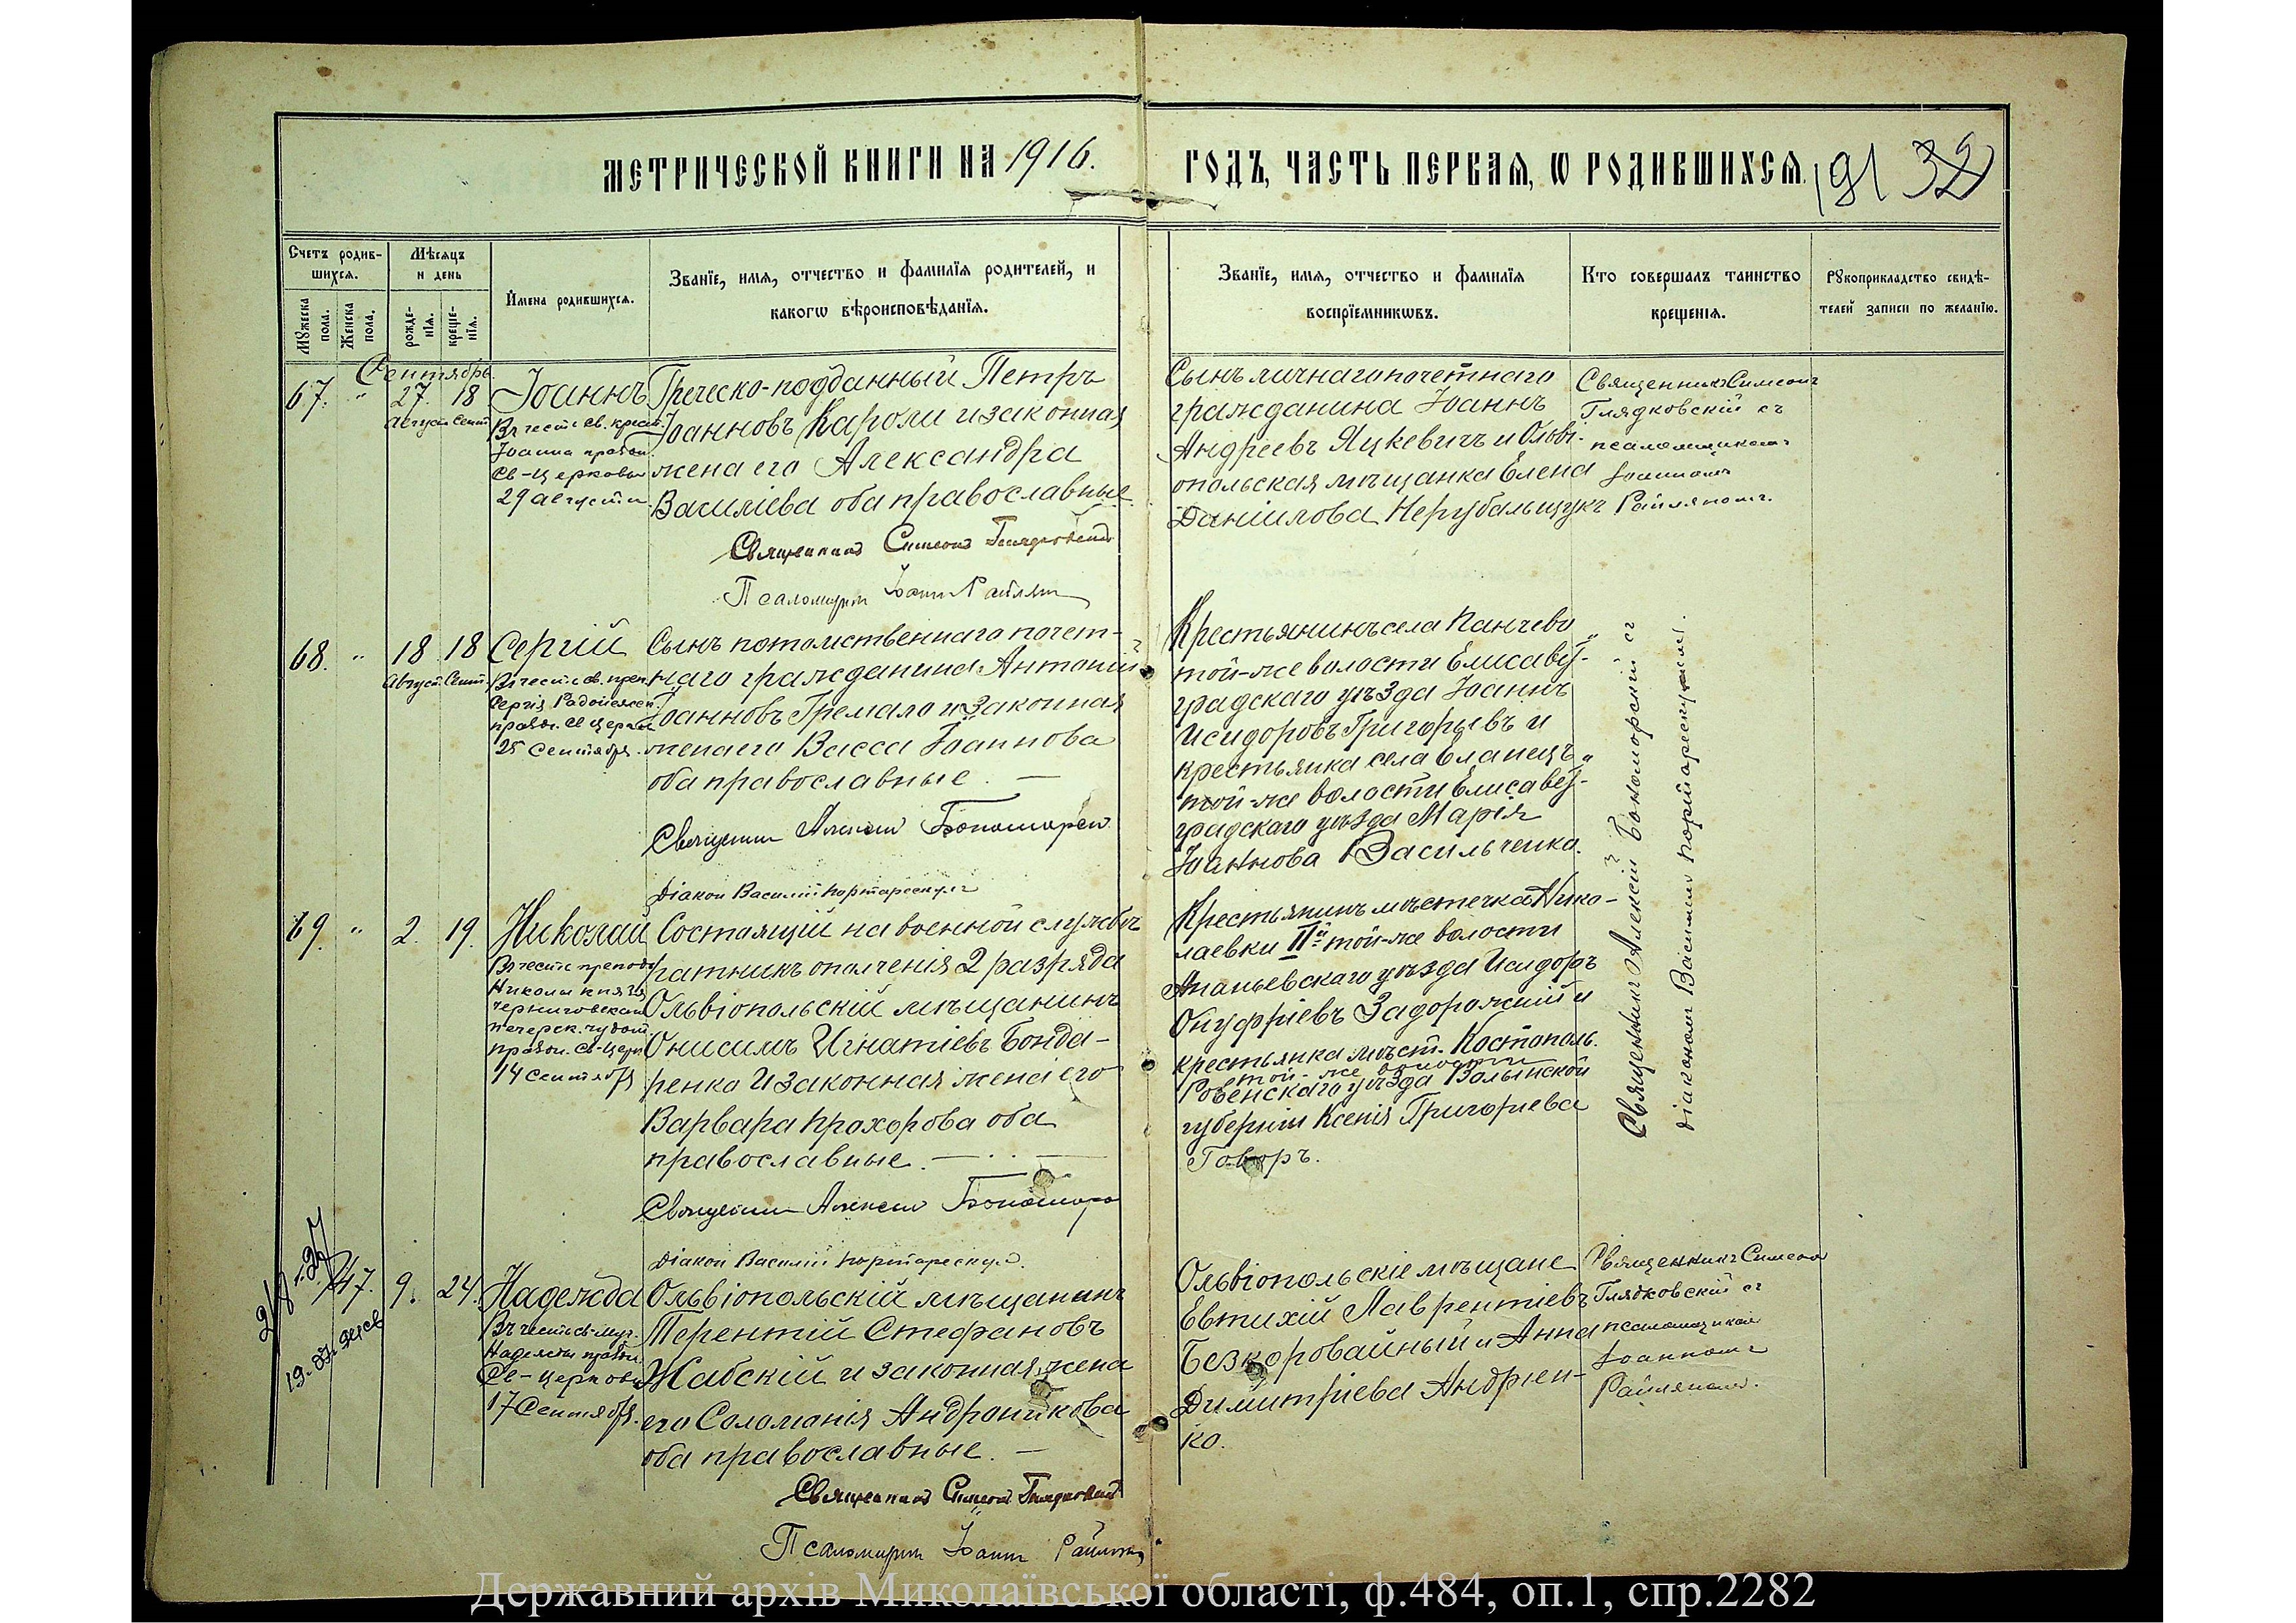 МЕТРИЧЕСКОЙ КНИГИ НА 1916.
ГОДЪ, ЧАСТЬ ПЕРВАЯ, Ѡ РОДИВШИХСЯ
191 32
Счетъ родив-
шихся.
Мужеска
пола.
Женска
пола.
Мѣсяцъ
и день
рожде-
нія.
креще-
нія.
Имена родившихся.
Званіе, имя, отчество и фамилія родителей, и
какогѡ вѣроисповѣданія.
Званіе, имя, отчество и фамилія
воспріемникѡвъ.
Кто совершалъ таинство
крещенія.
Рукоприкладство свидѣ-
телей записи по желанію.
Сентябрь
67. " 27 18
Август Сент.
Іоаннъ
Въ честь св. крест.
Іоанна праздн.
Св-Церковью
29 августа
Греческо-подданный Петръ
Іоанновъ Кароли и законная
жена его Александра
Василіева оба православные.
Священникъ Симеонъ Глядковскій
Псаломщикъ Іоаннъ Райлянъ
Сынъ личнаго почетнаго
гражданина Іоаннъ
Андреевъ Яцкевичъ и Ольві-
опольская мѣщанка Елена
Даніилова Нерубальщукъ
Священникъ Симеонъ
Глядковскій съ
псаломщикомъ
Іоанномъ
Райляномъ.
68. " 18 18
Август. Сент.
Сергій
Въ честь св. преп.
Сергія Радонежск.
праздн. св церков
25 Сентября.
Сынъ потомственнаго почет-
наго гражданина Антоній
Іоанновъ Гремало и законная
жена его Васса Іоаннова
оба православные. —
Священникъ Алексій Бономорскій
Діаконъ Василій Портарескулъ
Крестьянинъ села Панчево
той-же волости Елисавет-
градскаго уѣзда Іоаннъ
Исидоровъ Григорьевъ и
крестьянка села Еланецъ
той-же волости Елисавет-
градскаго уѣзда Марія
Іоаннова Васильченко.
Священникъ Алексій Бономорскій съ
діакономъ Василіемъ Портарескуломъ.
69. " 2. 19.
Николай
Въ честь преподоб
Николы князя
Черниговскаго
печерск. чудот.
праздн. св-церк
14 Сентября
Состоящій на военной службѣ
ратникъ ополченія 2 разряда
Ольвіопольскій мѣщанинъ
Онисимъ Игнатіевъ Бонда-
ренко и законная жена его
Варвара Прохорова оба
православные. —
Священникъ Алексій Бономорскій
Діаконъ Василій Портарескулъ.
Крестьянинъ мѣстечка Нико-
лаевки IIй той-же волости
Ананьевскаго уѣзда Исидоръ
Онуфріевъ Задорожній и
крестьянка мѣст. Костополь.
той-же волости
Ровенскаго уѣзда Волынской
губерніи Ксенія Григорьева
Говоръ.
47. 9. 24.
Надежда
Въ честь св-муч.
Надежды праздн.
Св-церковью
17 Сентября.
Ольвіопольскій мѣщанинъ
Терентій Стефановъ
Жабскій и законная жена
его Соломонія Андроникова
оба православные. —
Священникъ Симеонъ Глядковскій
Псаломщикъ Іоаннъ Райлянъ
Ольвіопольскіе мѣщане
Евтихій Лаврентіевъ
Безкоровайный и Анна
Димитріева Андріен-
ко.
Священникъ Симеонъ
Глядковскій съ
псаломщикомъ
Іоанномъ
Райляномъ.
Державний архів Миколаївської області, ф.484, оп.1, спр.2282